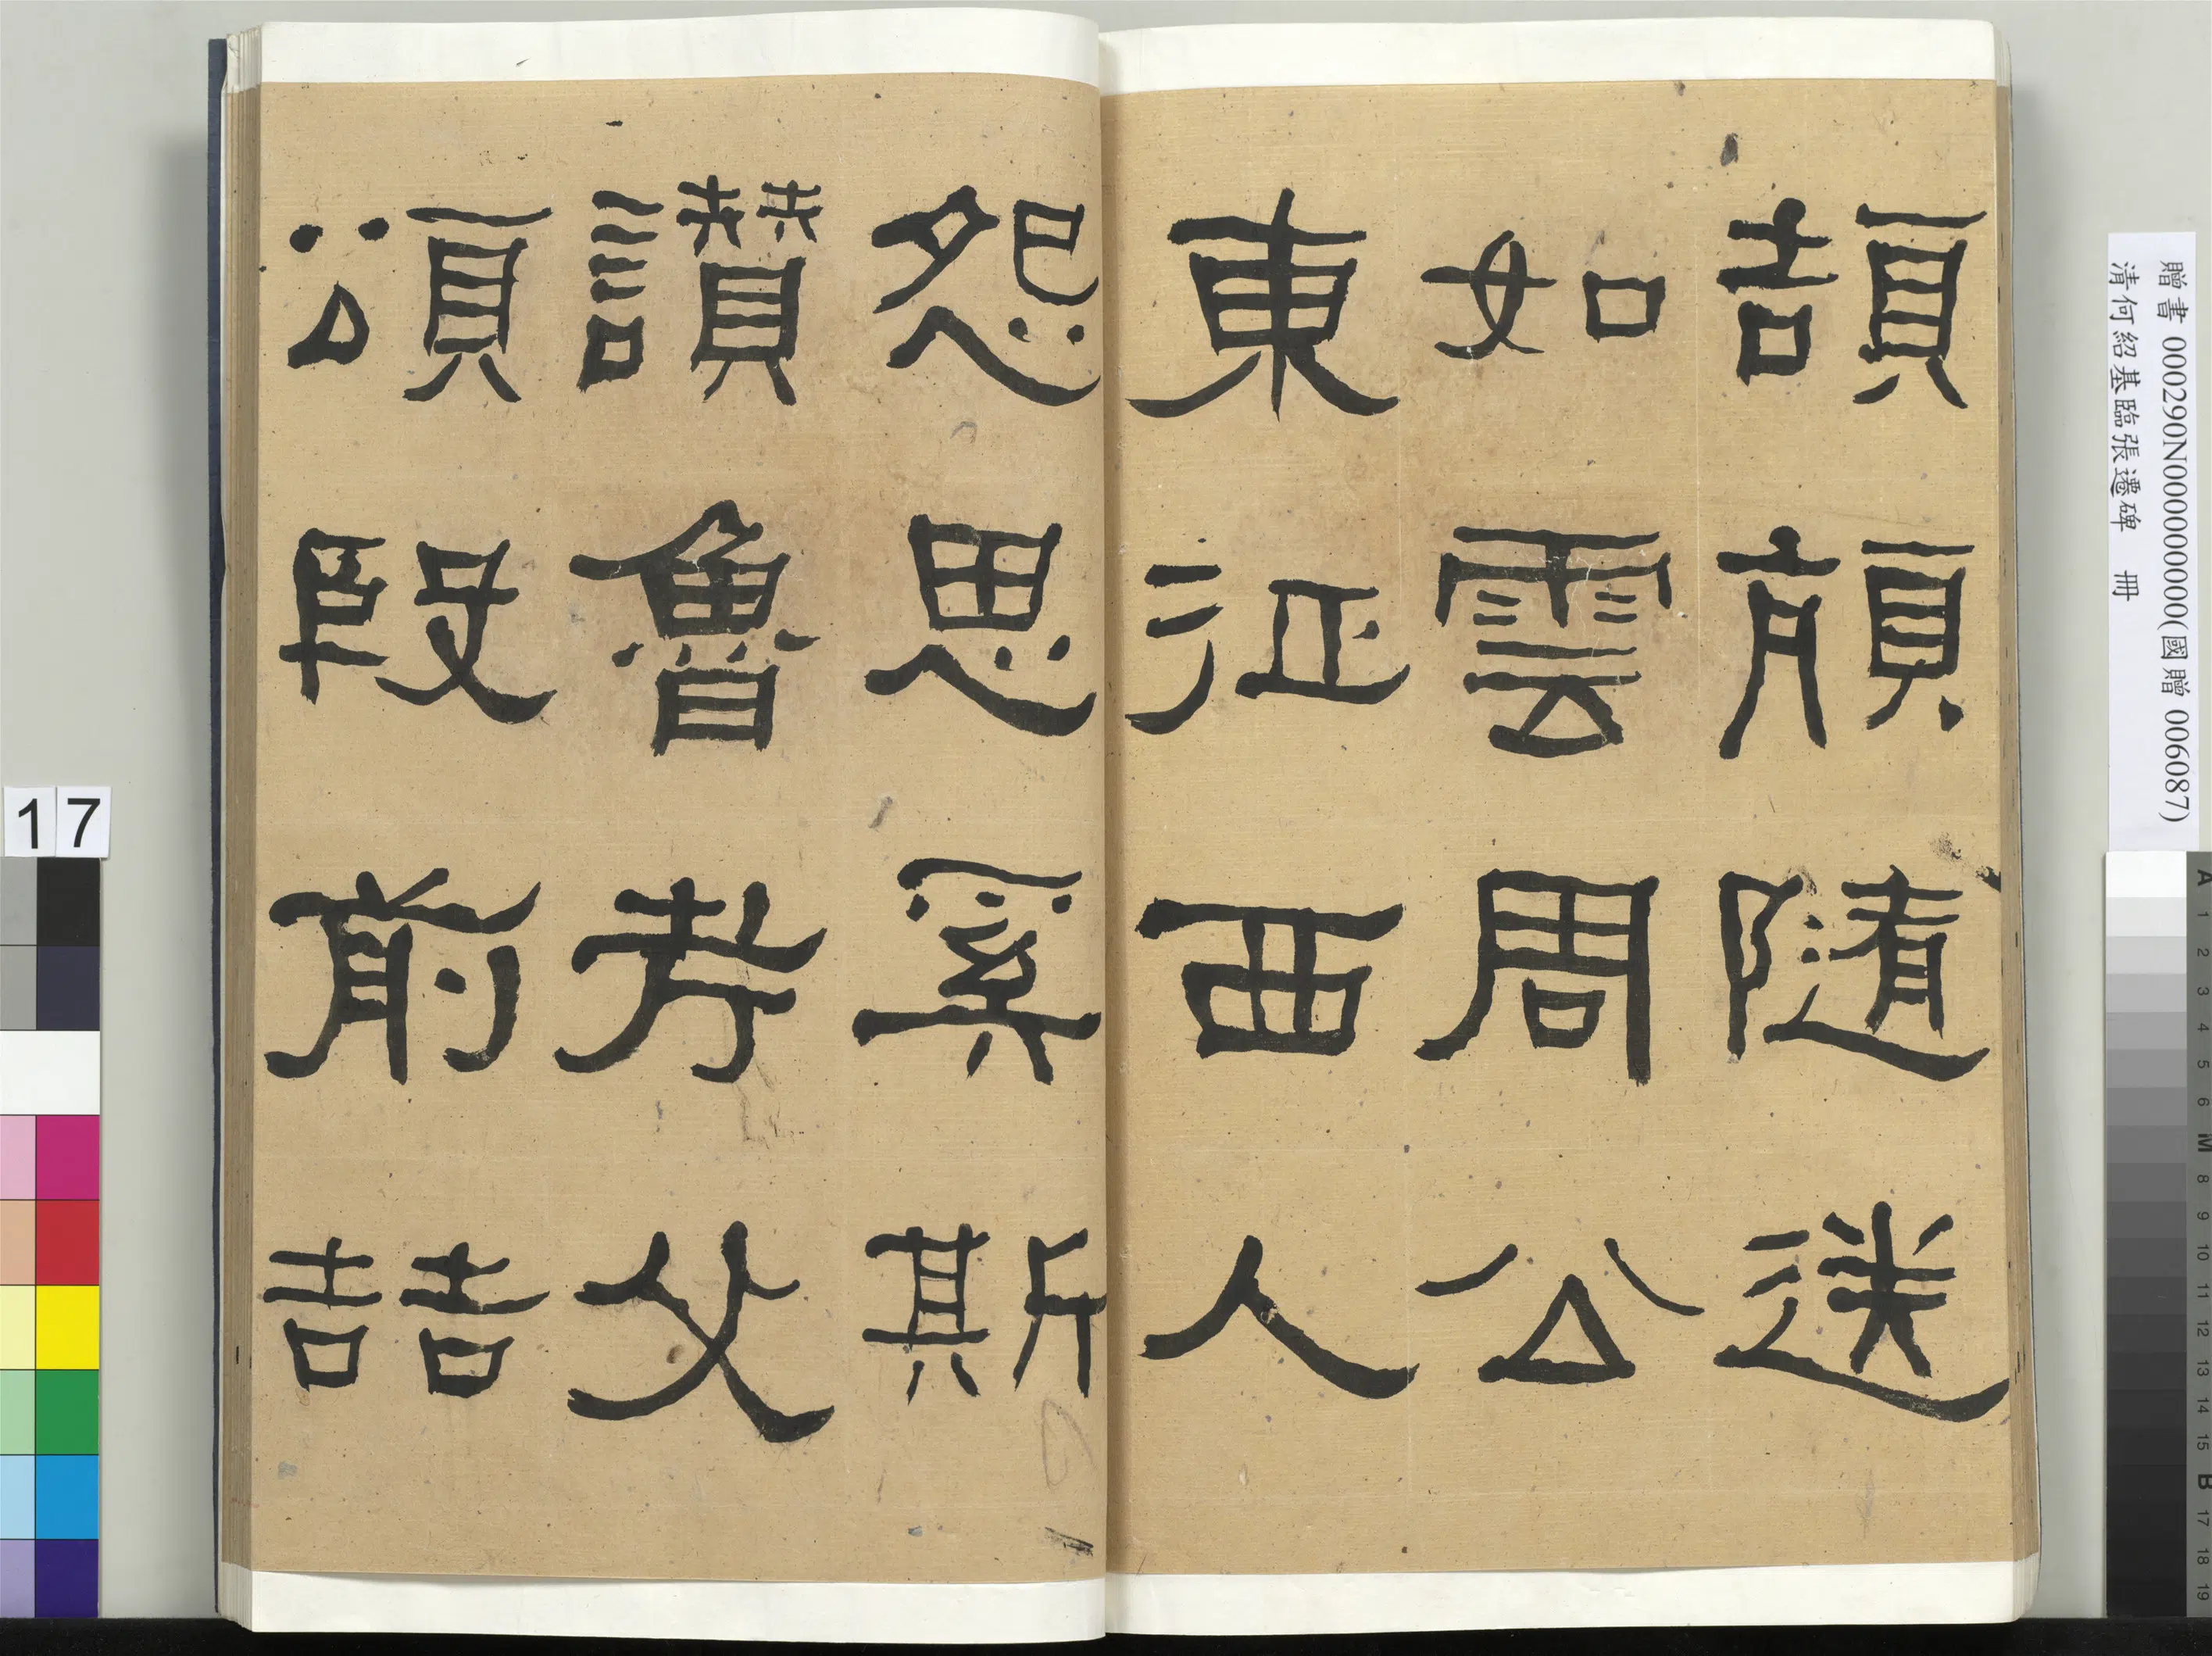 頡頏隨送
如雲周公
東征西人
怨思奚斯
讃魯考父
頌殷前喆
贈書 000290N000000000(國贈 006087)
清何紹基臨張遷碑 冊
17
A 1 2 3 4 5 6 M 8 9 10 11 12 13 14 15 B 17 18 19